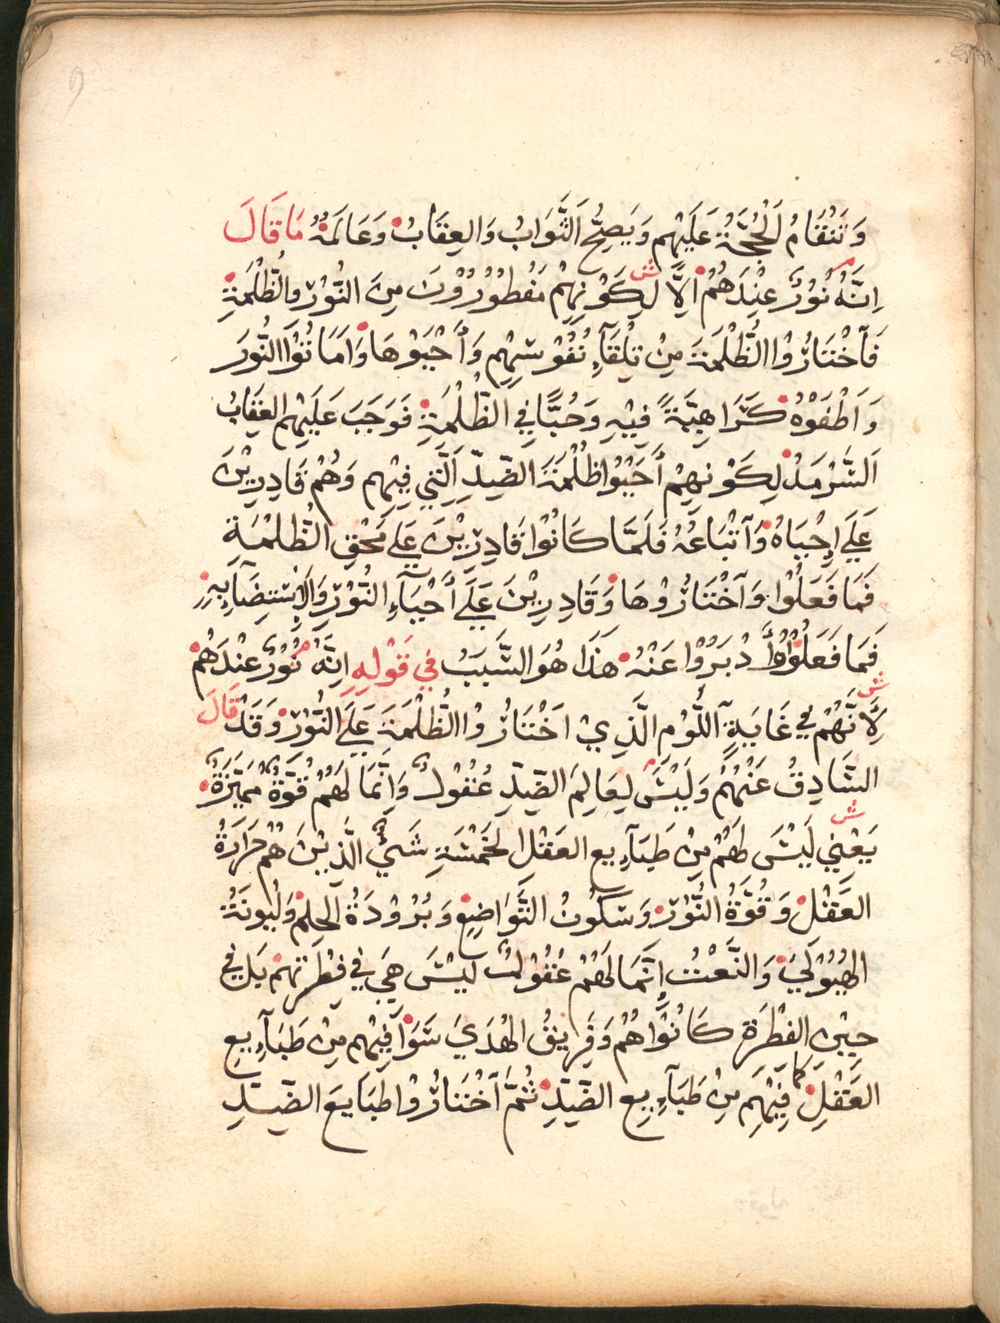 وَتَنْقَامُ لْحُجَّةُ عَلَيْهِم وَيَصِحُّ الثَّوَابُ وَالعِقَابُ وَعَالَمَهُ مَا قَالَ
اِنَّهُ نُوْرٌ عِنْدَهُمْ اِلَّا لِكَوْنِهِمْ مَفْطُوْرُوْنَ مِنَ النُّوْرِ وَالظُّلْمَةِ
فَآخْتَارُوْا الظُّلْمَةَ مِنْ تِلْقَآءِ نُفُوْسِهِم وَأَحْيَوْهَا وَامَاتُوْا النُّورَ
وَاَطْفَوْهُ كَرَاهِيَةً فِيْهِ وَحُبًّا فِي الظُّلْمَةِ فَوَجَبَ عَلَيْهِم العِقَابُ
اَلسَّرْمَدْ لِكَوْنِهِمْ أَحْيَوْا ظُلْمَةَ الضِّدِّ اَلَّتِي فِيْهِم وَهُمْ قَادِرِيْنَ
عَلَى اِحْيَاهُ وَآتْبَاعُهُ فَلَمَّا كَانُوْا قَادِرِيْنَ عَلَى مَحْقِ الظُّلْمَةِ
فَمَا فَعَلُوْا وَآخْتَارُوْهَا وَقَادِرِيْنَ عَلَى أَحْيَآءِ النُّوْرِ وَالْاِسْتِضَآءِ بِهِ
فَمَا فَعَلُوْا وَأَدْبَرُوْا عَنْهُ هَذَا هُوَ السَّبَبُ فِي قَوْلِهِ اِنَّهُ نُوْرٌ عِنْدَهُمْ
لِاَنَّهُمْ فِي غَايَةِ آللَّوْمِ الَّذِيْ اَخْتَارُوْا الظُّلْمَةَ عَلَى النُّوْرِ وَقَدْ قَالَ
السَّادِقُ عَنْهُمْ وَلَيْسَ لِعَالَمِ الضِّدِّ عُقُوْلٌ وَاِنَّمَا لَهُمْ قُوَّةٌ مُمَيِّزَةٌ
يَعْنِي لَيْسَ لَهُمْ مِنْ طَبَآيِعِ العَقْلِ الخَمْسَةِ شَيْءٌ الَّذِيْنَ هُمْ حَرَارَةُ
العَقْلْ وَقُوَّةُ النُّوْرْ وَسُكُونُ التَّوَاضِعْ وَبُرُوْدَةُ آلحِلمْ وَلْيُونَةُ
الهَيُوْلَى وَالنَّعْتُ اِنَّمَا لَهُمْ عُقُوْلٌ لَيْسَ هِيَ فِي فِطْرَتِهِمْ بَلْ فِي
حِيْنِ الفِطْرَةِ كَانُوْا هُمْ وَفَرِيقُ الهُدَى سَوَا فِيْهِم مِنْ طَبَآيِعِ
العَقْلِ كَمَا فِيْهِم مِنْ طَبَآيِعِ الضِّدِّ ثُمَّ أَخْتَارُوْا طَبَايِعَ الضِّدِّ